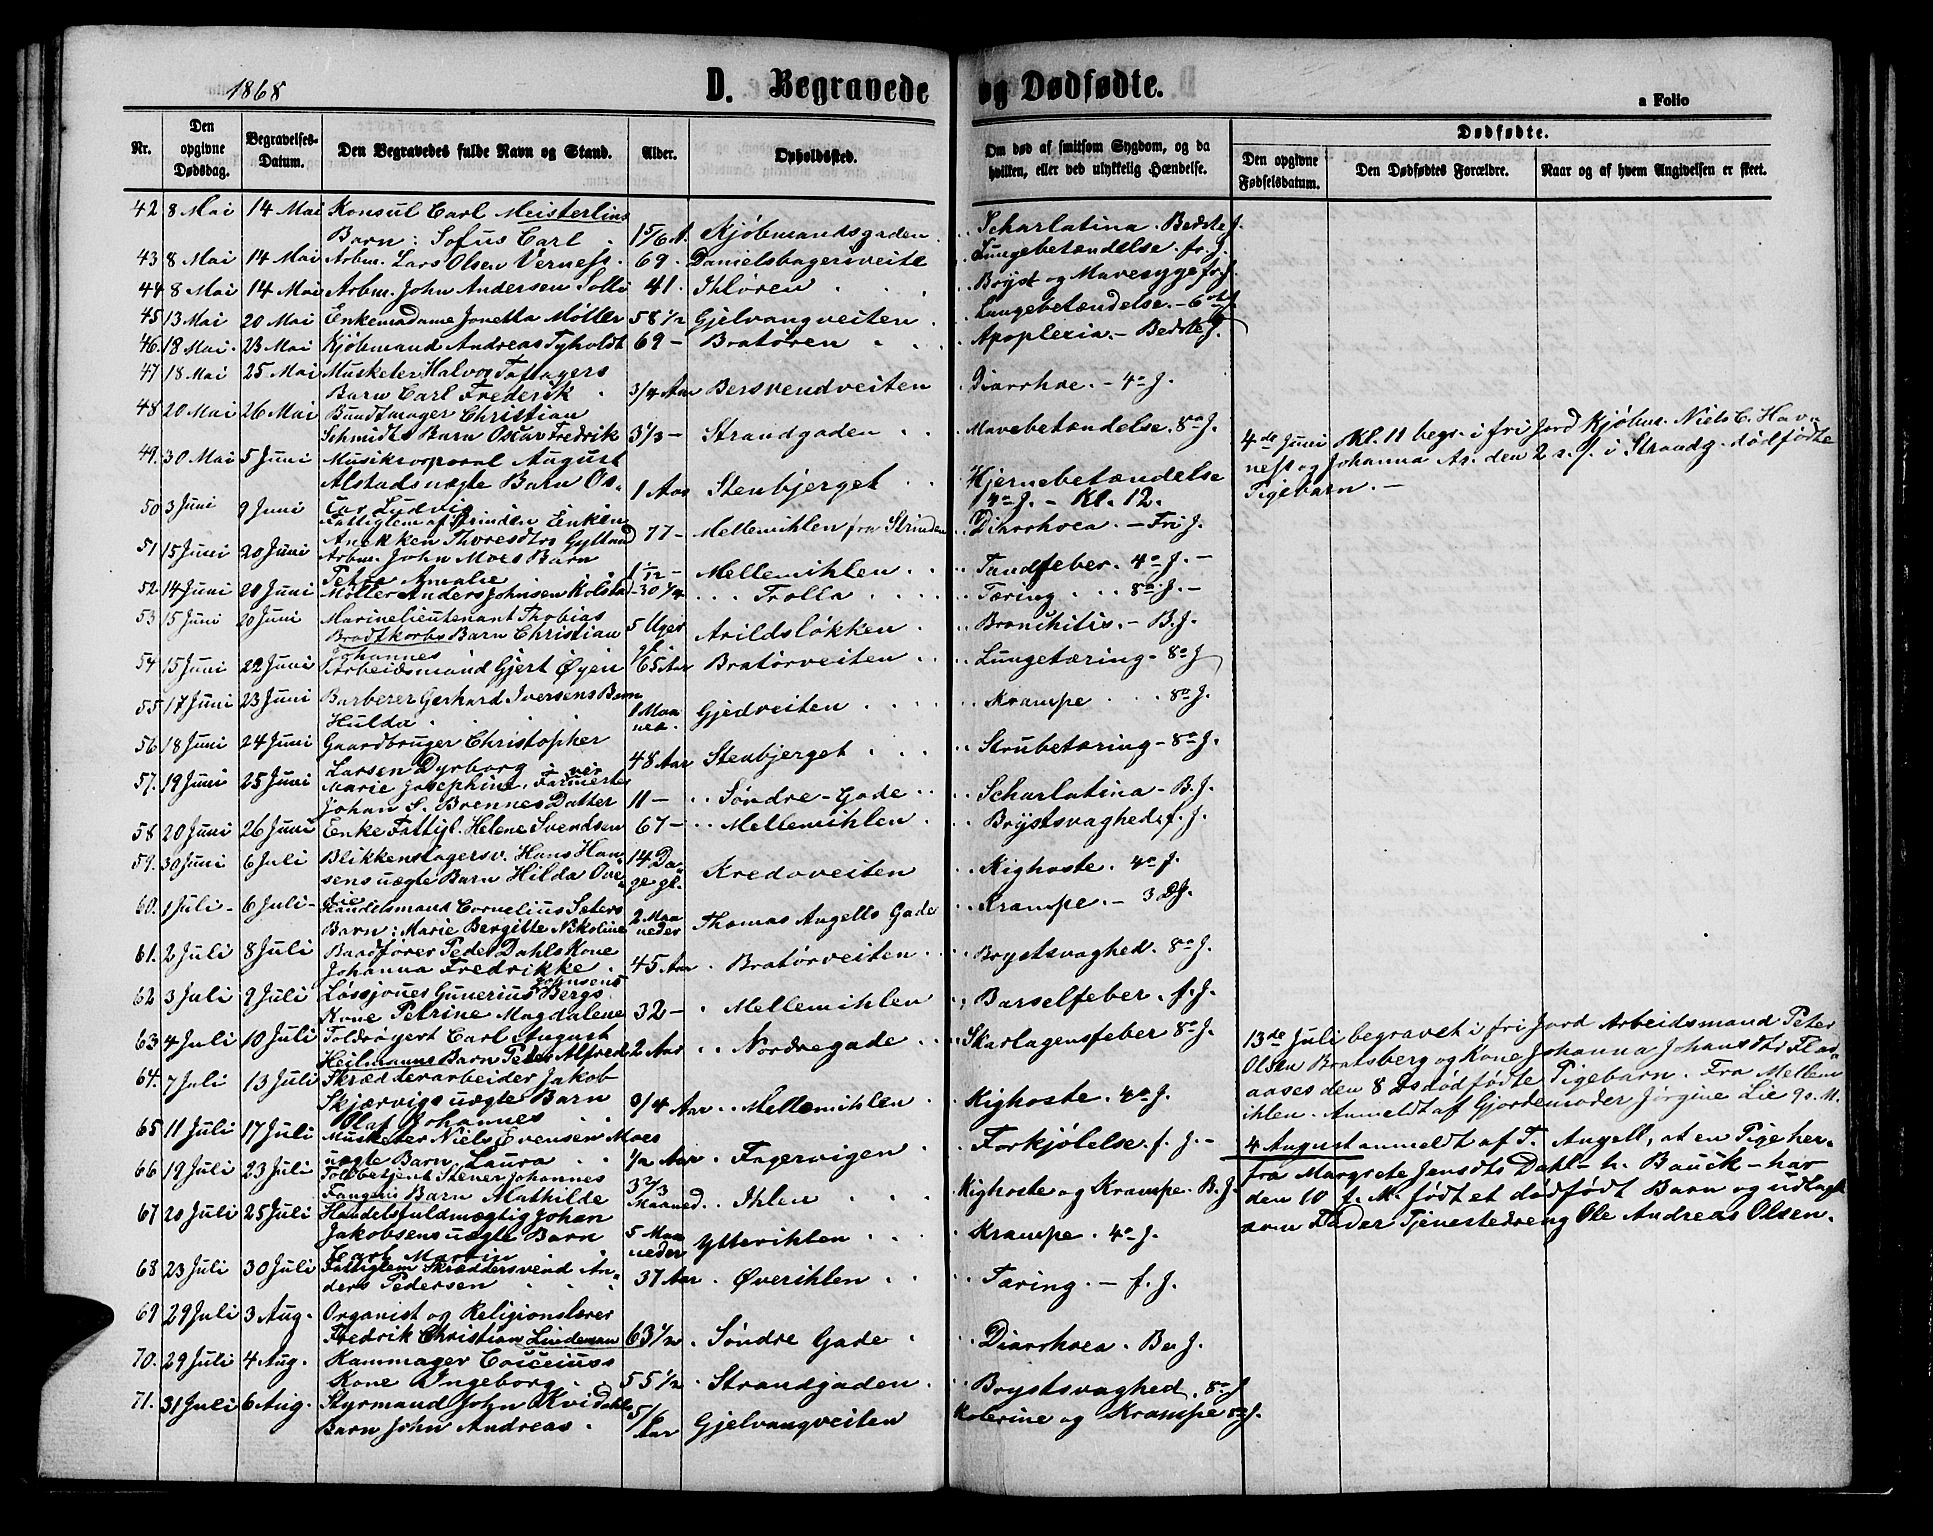 1868
D. Begravede og Dødfødte.
a Folio
Nr.
Den opgivne Dødsdag.
Begravelses-Datum.
Den Begravedes fulde Navn og Stand.
Alder.
Opholdssted.
Om død af smitsom Sygdom, og da hvilken, eller ved ulykkelig Hændelse.
Dødfødte.
Den opgivne Fødselsdatum.
Den Dødfødtes Forældre.
Naar og af hvem Angivelsen er skeet.
42 8 Mai 14 Mai Konsul Carl Meisterlins
Barn: Sofus Carl 1 5/6 A. Kjøbmandsgaden Scharlatina. Bedste J.
43 8 Mai 14 Mai Arbm. Lars Olsen Verness. 69. Danielsbagerveite Lungebetændelse. fr. J.
44 8 Mai 14 Mai Arbm. John Andersen Solli 41. Ihløren Bryst og Mavesyge fr. J.
45 13 Mai 20 Mai Enkemadame Jonetta Møller 58 1/2 Gjelvangveiten Lungebetændelse. - 6
46. 18 Mai. 23 Mai Kjøbmand Andreas Tyholdt 69 - Bratøren Apoplexia. - Bedste J.
47 18 Mai 25 Mai Musketer Halvor Foffagers
Barn Carl Frederik 3/4 Aar Bersvendveiten Diarrhoe. - 4a J.
48 20 Mai 26 Mai Bundtmager Christian
Schmidts Barn Oscar Fredrik 3 1/3 - Strandgaden Mavebetændelse. 8a J.
49. 30 Mai 5 Juni Musikcorporal August
Alstads uægte Barn Os-
car Ludvig 1 Aar Stenbjerget Hjernebetændelse
4a J. - Kl. 12.
50 3 Juni 9 Juni Fattiglem af Strinden Enken
Anekken Thoresdtr Gylland 77 - Mellemihlen fra Strinden Diarrhoea. - Fri J.
51 15 Juni 20 Juni Arbm. John Moes Barn
Petra Amalie 1 1/12 - Mellemihlen Tandfeber. 4a J. -
52. 14 Juni 20 Juni Møller Anders Johnsen Kolsta - 30 1/4 Trolla Tæring 8a J. -
53 15 Juni 20 Juni Marinelieutenant Thobias
Brodtkorbs Barn Christian
Johannes 5 Uger Arildsløkken Bronchitis. - B. J.
54 15 Juni 22 Juni Arbeidsmand Gjert Øyen 65 Aar Bratørveiten Lungetæring - 8a J
55 17 Juni 23 Juni Barberer Gerhard Iversens Barn
Hulda 1 Maa
ned. Gjedveiten Krampe 8a J.
56 18 Juni 24 Juni Gaardbruger Christopher
Larsen Dyrborg 48 Aar Stenbjerget Strubetæring - 8a J.
57. 19 Juni 25 Juni Marie Josephine, Farver
Johan S. Brennes Datter 11 - Søndre-Gade Scharlatina - B. J.
58 20 Juni 26 Juni Enke Fattigl. Helene Svendsen 67 - Mellemihlen Brystsvaghed. f. J.
59. 30 Juni 6 Juli Blikkenslagersv. Hans Han-
sens uægte Barn Hilda Ove-
die 14 Da-
ge gl. Kredoveiten Kighoste. 4a J.
60. 1 Juli - 6 Juli - Handelsmand Cornelius Seters
Barn: Marie Bergitte Nikoline 2 Maa
neder Thomas Angells Gade Krampe. -
61. 2 Juli 8 Juli Baadfører Peder Dahls Kone
Johanna Fredrikke 45 Aar Bratørveiten Brystsvaghed. 8a J.
62 3 Juli 9 Juli Løssjouer Gunerius Johnsens Bergs
Kone Petrine Magdalene 32 - Mellemihlen Barselfeber. f. J.
63 4 Juli 10 Juli Toldrorgert Carl August
Heilmanns Barn Peter Alfred 2 Aar Nordregade Skarlagensfeber 8a J.
64. 7 Juli 13 Juli Skrædderarbeider Jakob
Skjærvigs uægte Barn
Olaf Johannes 3/4 Aar Mellemihlen Kighoste. 4a J.
65 11 Juli 17 Juli Musketer Niels Evensen Moes
uægte Barn Laura 1/2 Aar Fagervigen Forkjølelse. f. J. -
66 19 Juli 23 Juli Toldbetjent Stener Johannes
Fangens Barn Mathilde 3 2/3
Maaned. Ihlen Kighoste og Krampe. B. J.
67 20 Juli 25 Juli Handelsfuldmægtig Johan
Jakobsens uægte Barn
Carl Martin 5 Maa
neder Ytterihlen Krampe. 4a J.
68 23 Juli 30 Juli Fattiglem Skræddersvend An-
ders Pedersen 37 Aar Øverihlen Tæring. - f. J.
69 29 Juli 3 Aug. Organist og Religionslærer
Fredrik Christian Lindeman 63 1/2 Søndre Gade Diarrhoea. Be. J.
70. 29 Juli 4 Aug. Kammager Cocceiuss
Kone Ingeborg 55 1/2 Strandgaden Brystsvaghed. 8a J
71. 31 Juli 6 Aug. Styrmand John Kvidahls
Barn John Andreas 5/6
Aar Gjelvangveiten Kolerine og Krampe 8a J.
4de Juni Kl. 11 begr. i fri Jord Kjøbm. Niels C. Hav
ness og Johanna As. den 2 s. f. i Strandg. dødfødte
Pigebarn. -
13de Juli begravet i fri Jord Arbeidsmand Peter
Olsen Bratsberg og Kone Johanna Johansdtr Flad-
aases den 8 Ds dødfødte Pigebarn. Fra Mellem
ihlen. Anmeldt af Gjordemoder Jørgine Lie 9 s. M.
4 August anmeldt af T. Angell, at en Pige her-
fra Margrete Jensdtr Dahl - h. Bauck - har
den 10 f. M. født et dødfødt Barn og udlagt
som Fader Tjenestedreng Ole Andreas Olsen.